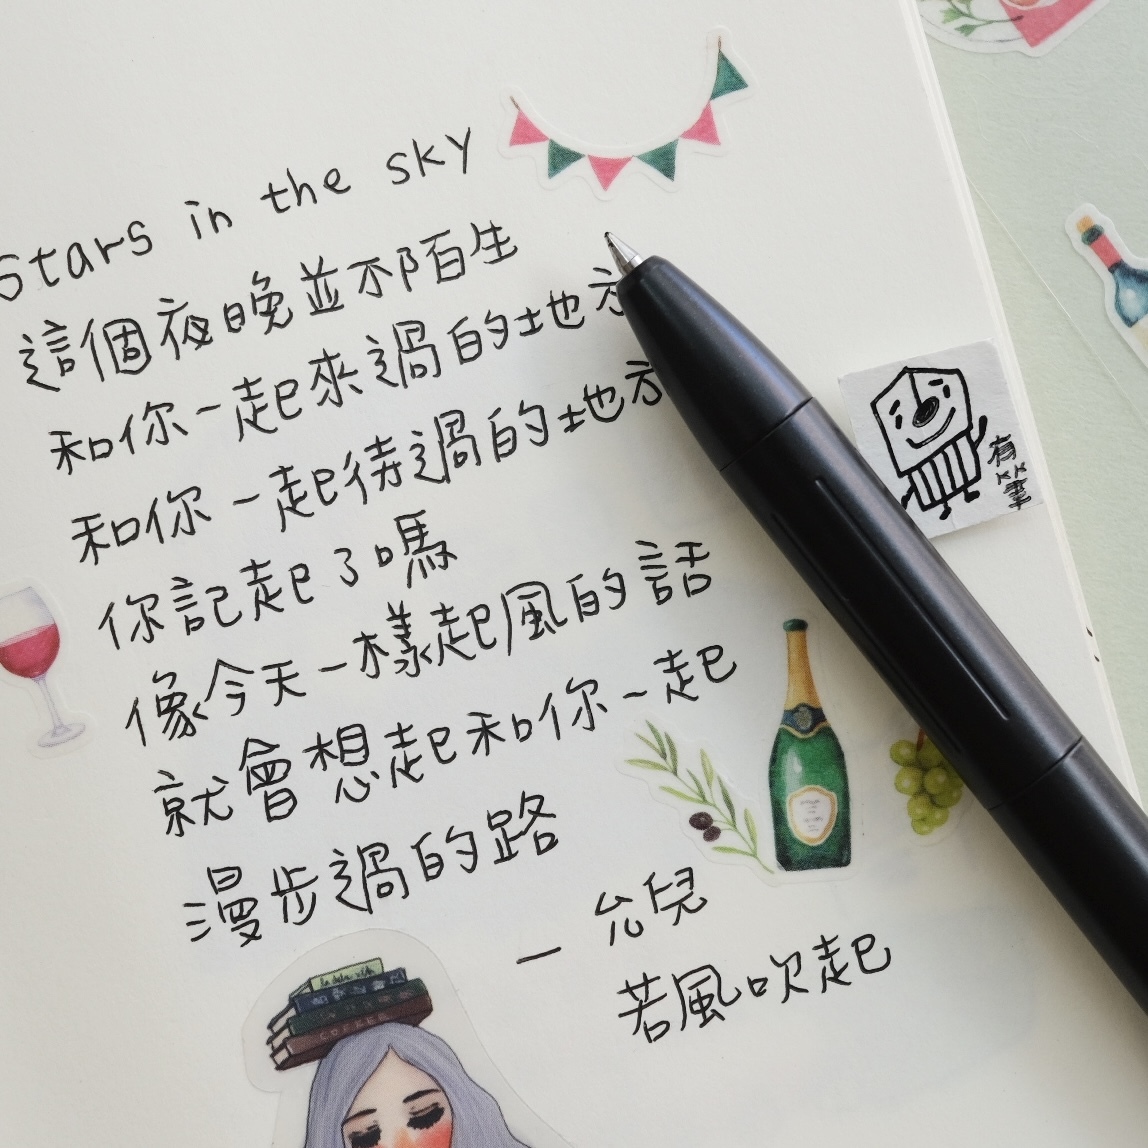 Stars in the sky
這個夜晚並不陌生
和你一起來過的地方
和你一起待過的地方
你記起了嗎
像今天一樣起風的話
就會想起和你一起
漫步過的路
— 允兒
若風吹起
有
筆
COFFEE